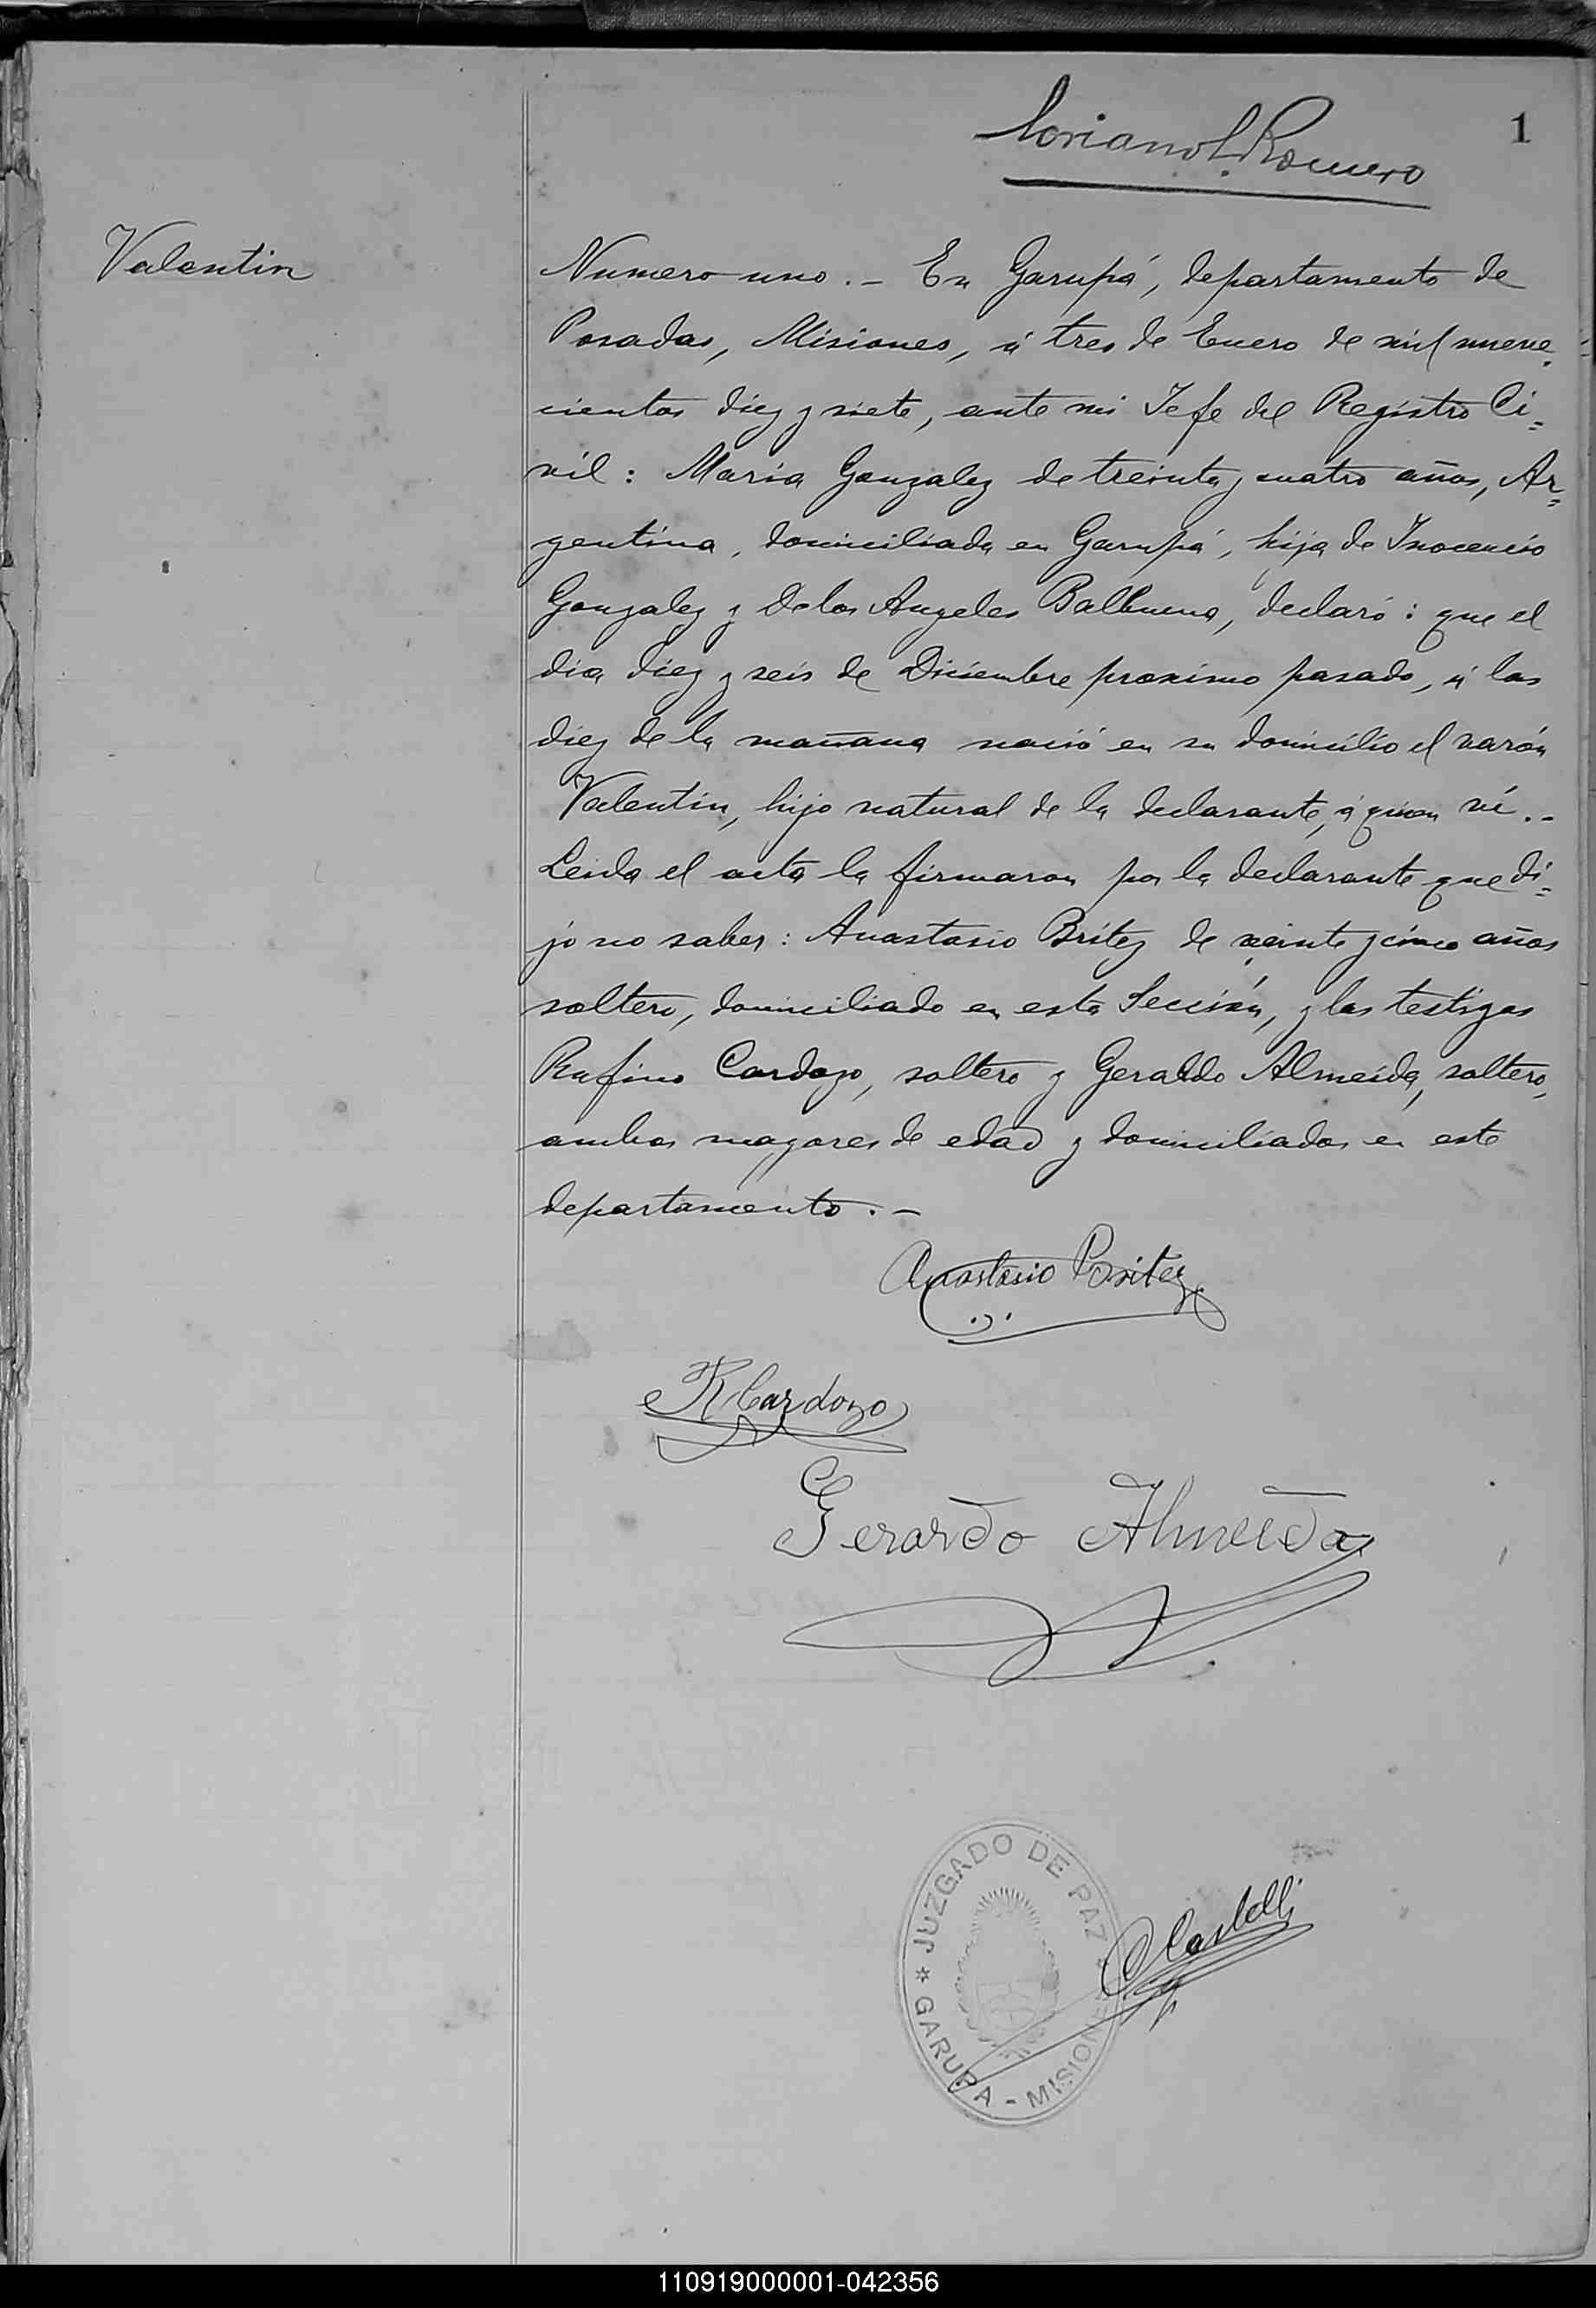 Soriano L. Romero
1
Valentin
Numero uno.- En Garupá, departamento de
Posadas, Misiones, á tres de Enero de mil nueve=
cientos diez y siete, ante mi Jefe del Registro Ci=
vil: Maria Gonzalez de treinta y cuatro años, Ar=
gentina, domiciliada en Garupá, hija de Inocencio
Gonzalez y De los Angeles Balbuena, declaró: que el
dia diez y seis de Diciembre proximo pasado, á las
diez de la mañana nació en su domicilio el varón
Valentin, hijo natural de la declarante, á quien ví.-
Leida el acta la firmaron por la declarante que di=
jo no saber: Anastasio Britez de veinte y cinco años
soltero, domiciliado en esta Sección, y los testigos
Rufino Cardozo, soltero y Geraldo Almeida, soltero,
ambos mayores de edad y domiciliados en este
departamento.-
Anastasio Britez
R Cardozo
Gerardo Almeida
JUZGADO DE PAZ
* GARUPA - MISIONES *
Castelli
110919000001-042356